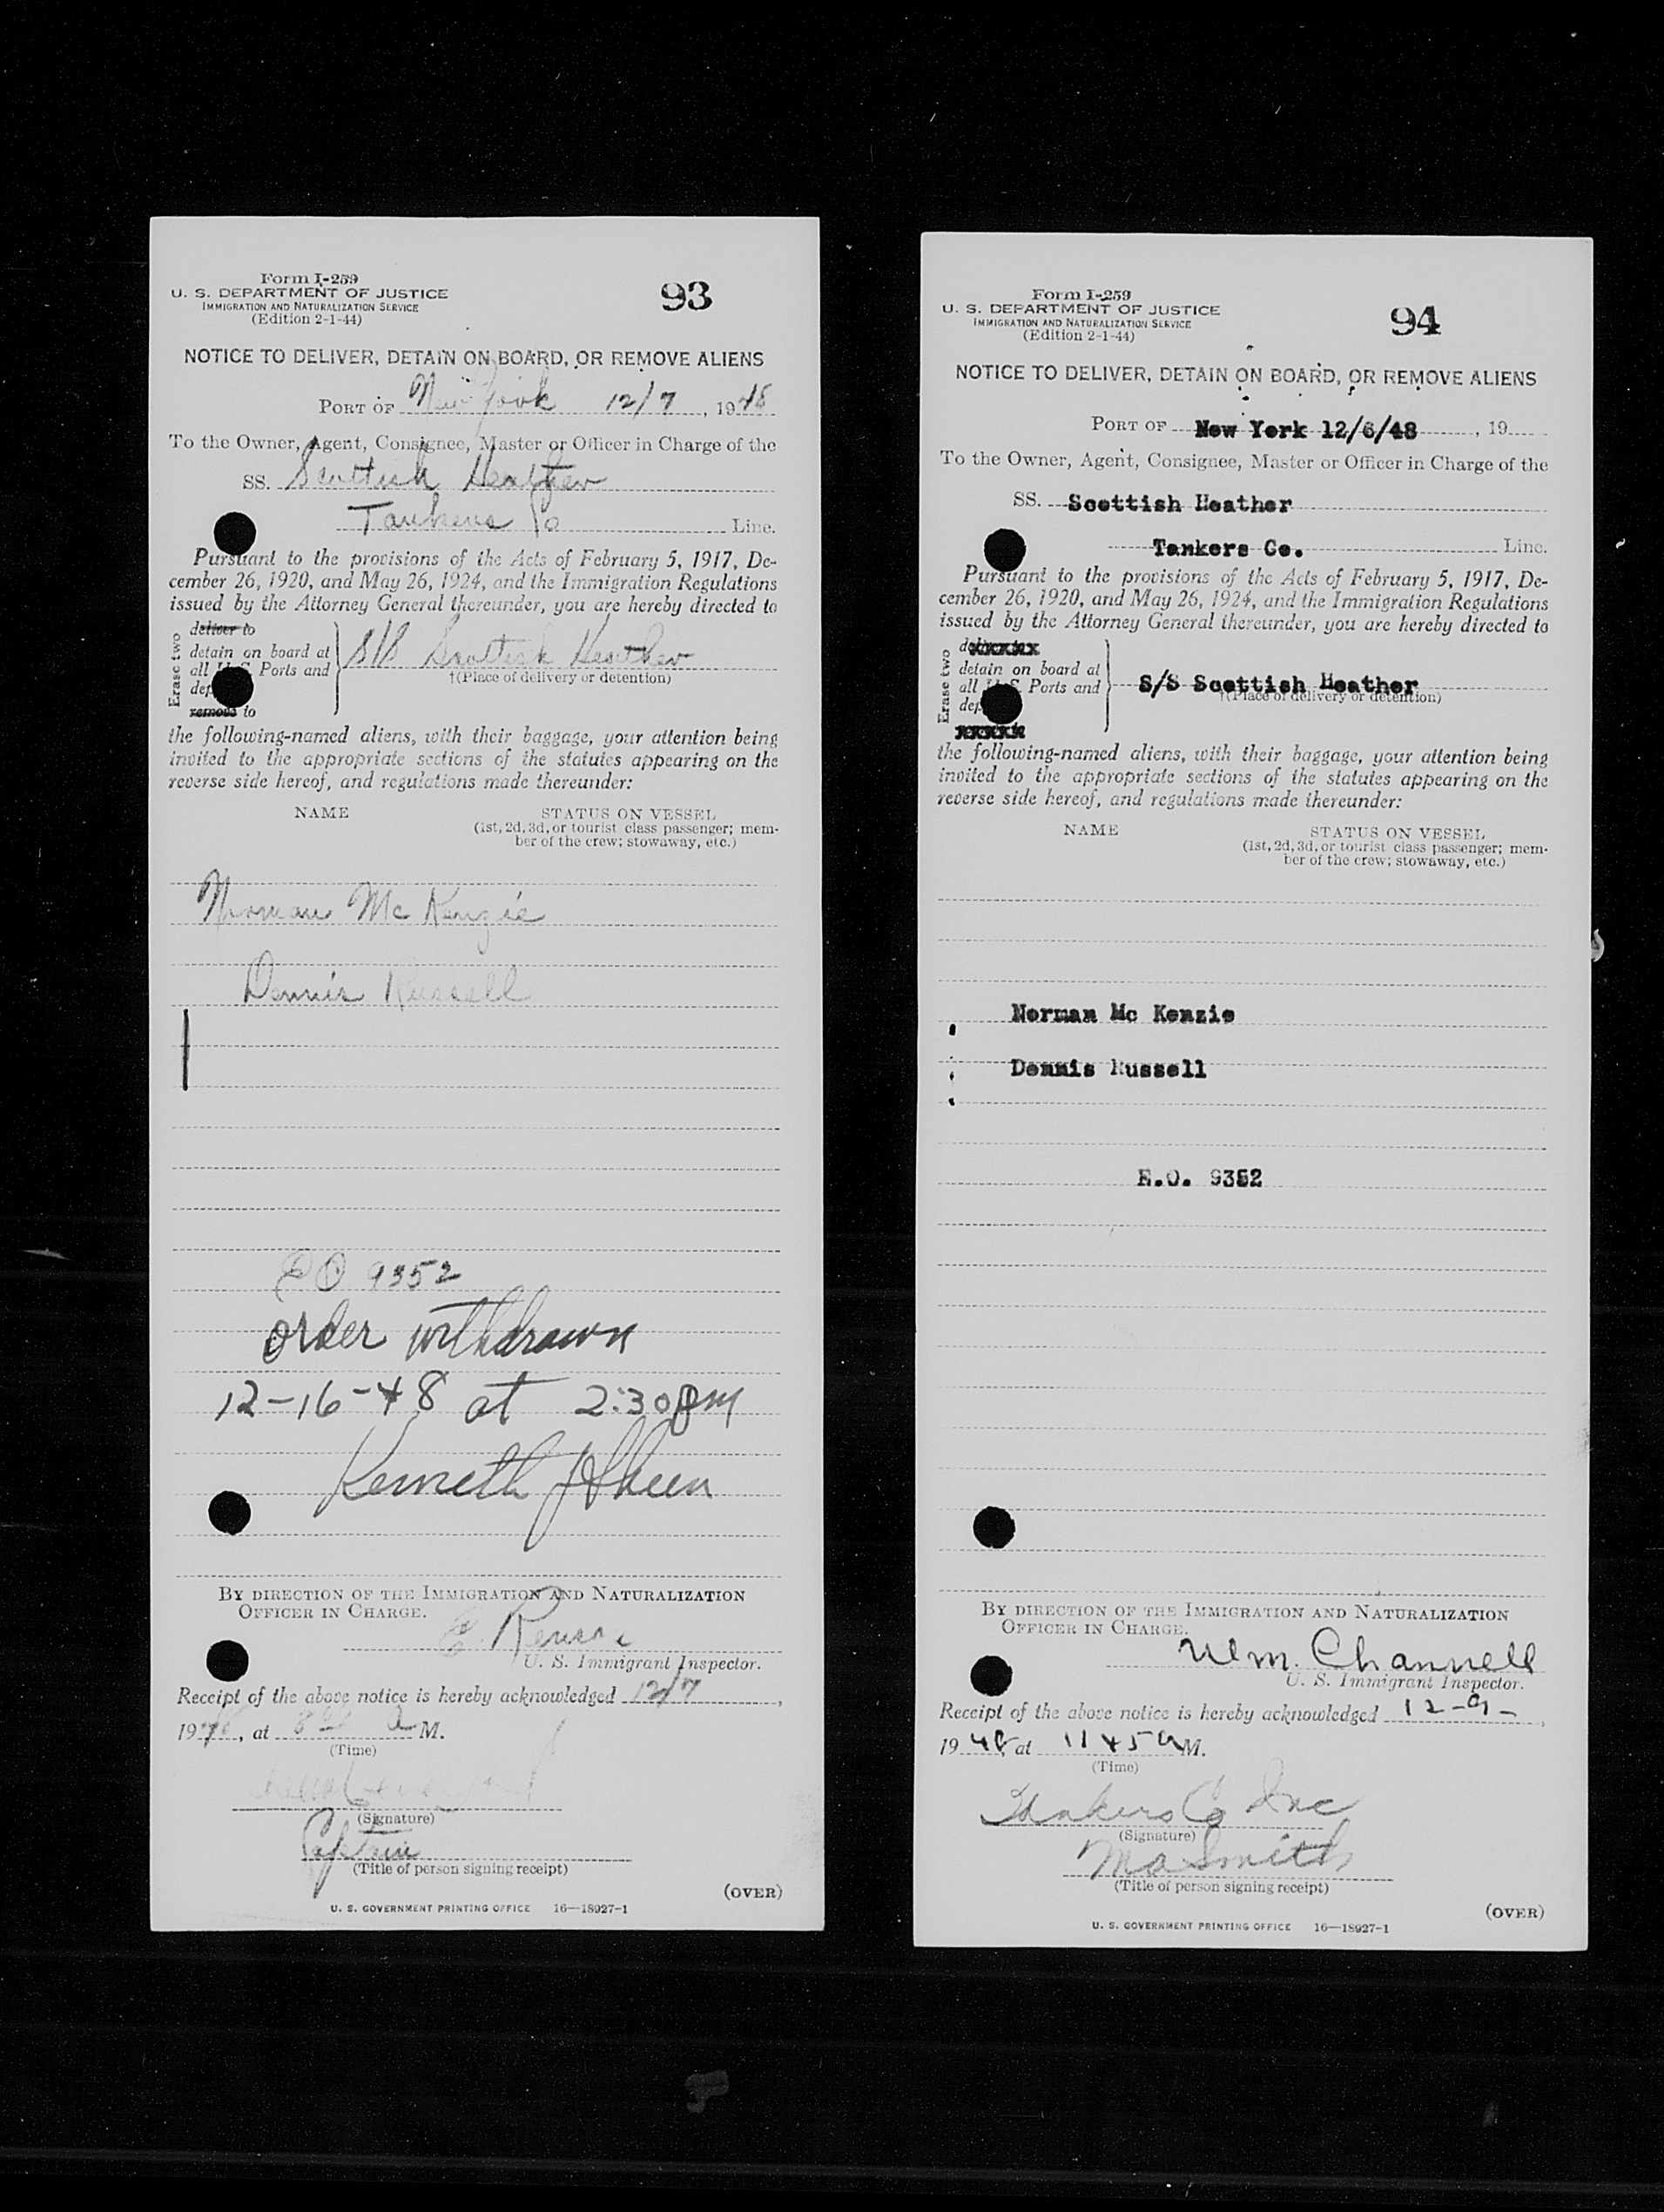 Form I-259
U. S. DEPARTMENT OF JUSTICE
IMMIGRATION AND NATURALIZATION SERVICE
(Edition 2-1-44)
93
NOTICE TO DELIVER, DETAIN ON BOARD, OR REMOVE ALIENS
PORT OF New York 12/7, 1948
To the Owner, Agent, Consignee, Master or Officer in Charge of the
SS. Scottish Heather
Tankers Co Line.
Pursuant to the provisions of the Acts of February 5, 1917, De-
cember 26, 1920, and May 26, 1924, and the Immigration Regulations
issued by the Attorney General thereunder, you are hereby directed to
Erase two
deliver to
detain on board at
all U.S. Ports and
dep
remove to
S/S Scottish Heather
†(Place of delivery or detention)
the following-named aliens, with their baggage, your attention being
invited to the appropriate sections of the statutes appearing on the
reverse side hereof, and regulations made thereunder:
NAME
STATUS ON VESSEL
(1st, 2d, 3d, or tourist class passenger; mem-
ber of the crew; stowaway, etc.)
Norman Mc Kenzie
Dennis Russell
EO 9352
order withdrawn
12-16-48 at 2:30 pm
Kenneth
BY DIRECTION OF THE IMMIGRATION AND NATURALIZATION
OFFICER IN CHARGE.
E.
U. S. Immigrant Inspector.
Receipt of the above notice is hereby acknowledged 12/7,
1948, at 8 A M.
(Time)
(Signature)
Captain
(Title of person signing receipt)
(OVER)
U. S. GOVERNMENT PRINTING OFFICE 16—18927-1
Form I-259
U. S. DEPARTMENT OF JUSTICE
IMMIGRATION AND NATURALIZATION SERVICE
(Edition 2-1-44)
94
NOTICE TO DELIVER, DETAIN ON BOARD, OR REMOVE ALIENS
PORT OF New York 12/6/48, 19
To the Owner, Agent, Consignee, Master or Officer in Charge of the
SS. Scottish Heather
Tankers Co. Line.
Pursuant to the provisions of the Acts of February 5, 1917, De-
cember 26, 1920, and May 26, 1924, and the Immigration Regulations
issued by the Attorney General thereunder, you are hereby directed to
Erase two
detain on board at
all U.S. Ports and
dep
S/S Scottish Heather
†(Place of delivery or detention)
the following-named aliens, with their baggage, your attention being
invited to the appropriate sections of the statutes appearing on the
reverse side hereof, and regulations made thereunder:
NAME
STATUS ON VESSEL
(1st, 2d, 3d, or tourist class passenger; mem-
ber of the crew; stowaway, etc.)
Norman Mc Kenzie
Dennis Russell
E.O. 9352
BY DIRECTION OF THE IMMIGRATION AND NATURALIZATION
OFFICER IN CHARGE.
Wm. Channell
U. S. Immigrant Inspector.
Receipt of the above notice is hereby acknowledged 12-9-,
1948, at 11 45 A M.
(Time)
Tankers Co Inc
(Signature)
M A Smith
(Title of person signing receipt)
(OVER)
U. S. GOVERNMENT PRINTING OFFICE 16—18927-1